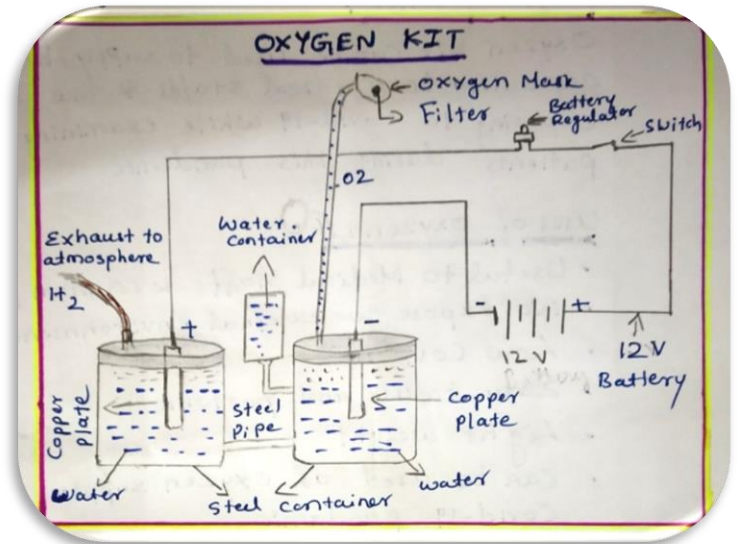 OXYGEN KIT
oxygen Mask
Filter
Battery
Regulator
Switch
O2
Water
Container
Exhaust to
atmosphere
H2
+
-
-
+
12V
12V
Battery
Copper
plate
Steel
Pipe
Copper
plate
Water
Steel Container
water